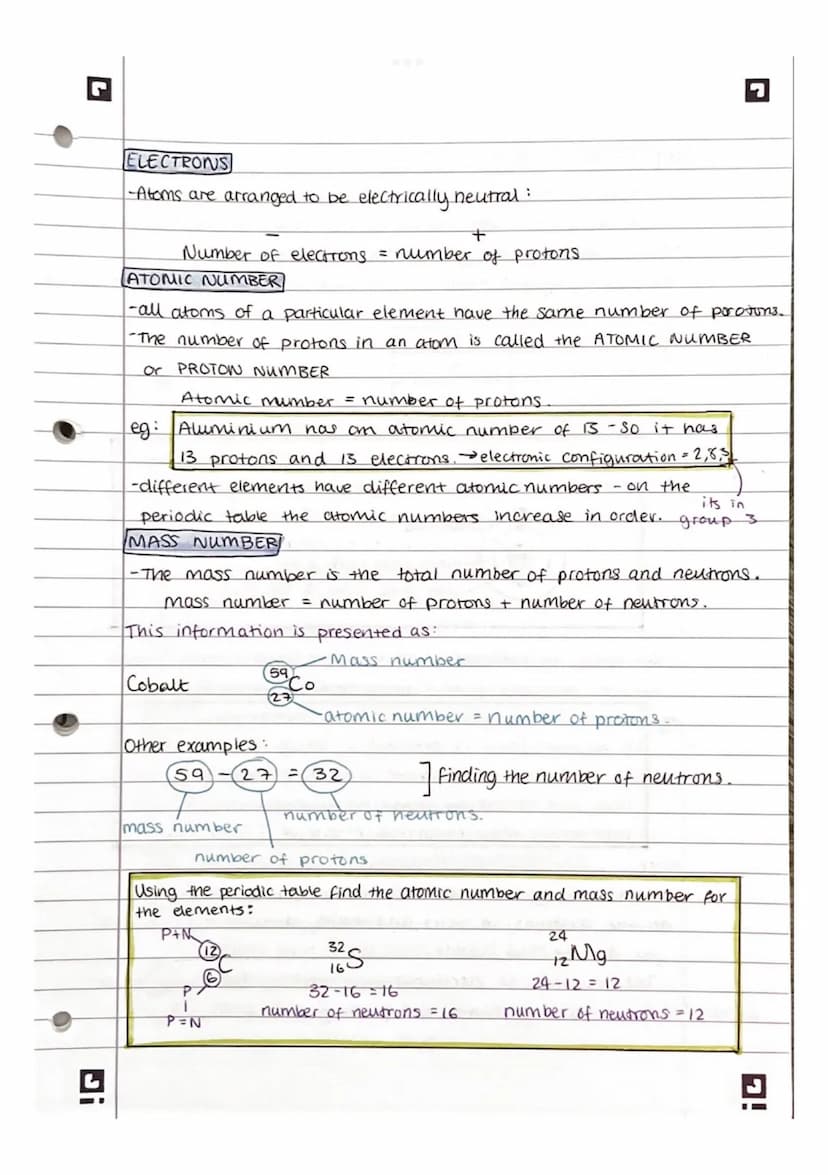 ELECTRONS
-Atoms are arranged to be electrically neutral:
− +
Number of electrons = number of protons
ATOMIC NUMBER
-all atoms of a particular element have the same number of porotons.
-The number of protons in an atom is called the ATOMIC NUMBER
or PROTON NUMBER
Atomic number = number of protons.
eg: Aluminium has an atomic number of 13 - so it has
13 protons and 13 electrons. →electronic configuration = 2,8,3
-different elements have different atomic numbers - on the
its in
periodic table the atomic numbers increase in order. group 3
MASS NUMBER
-The mass number is the total number of protons and neutrons.
mass number = number of protons + number of neutrons.
-This information is presented as:
59 Mass number
Cobalt Co
27
atomic number = number of protons.
Other examples:
59 - 27 = 32 ] Finding the number of neutrons.
number of neutrons.
mass number
number of protons
Using the periodic table find the atomic number and mass number for
the elements:
P+N 24
12 32
C S 12 Mg
6 16
P 32-16 = 16 24-12 = 12
P=N number of neutrons = 16 number of neutrons = 12